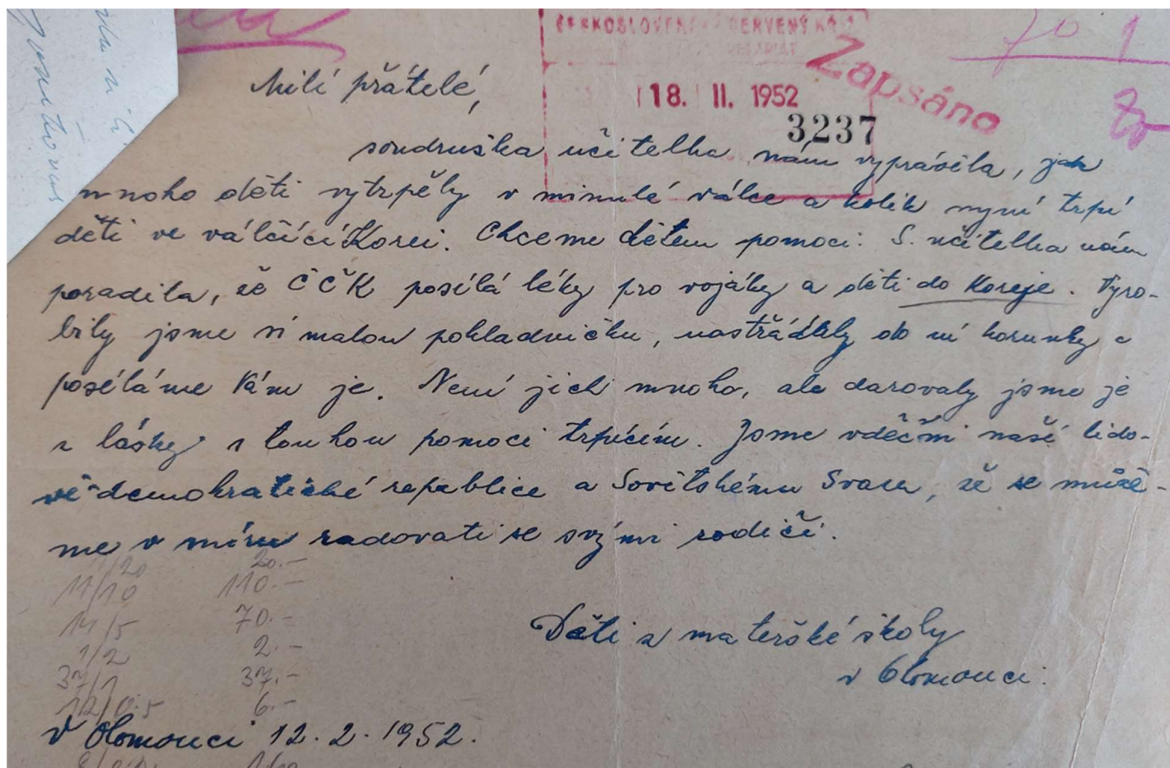 ČESKOSLOVENSKÝ ČERVENÝ KŘÍŽ
70 1
Zapsáno
18. II. 1952
3237
Milí přátelé,
soudružka učitelka nám vyprávěla, jak
mnoho děti vytrpěly v minulé válce a kolik nyní trpí
děti ve válčící Korei. Chceme dětem pomoci. S. učitelka nám
poradila, že ČČK posílá léky pro vojáky a děti do Koreje. Vyro-
bily jsme si malou pokladničku, nastřádaly do ní korunky a
posíláme Vám je. Není jich mnoho, ale darovaly jsme je
z lásky s touhou pomoci trpícím. Jsme vděčni naší lido-
vě-demokratické republice a Sovětskému Svazu, že se může-
me v míru radovati se svými rodiči.
1/20 20.-
11/10 110.-
14/5 70.-
1/2 2.-
37/1 37.-
12/0.5 6.-
Děti z mateřské školy
v Olomouci.
V Olomouci 12.2.1952.